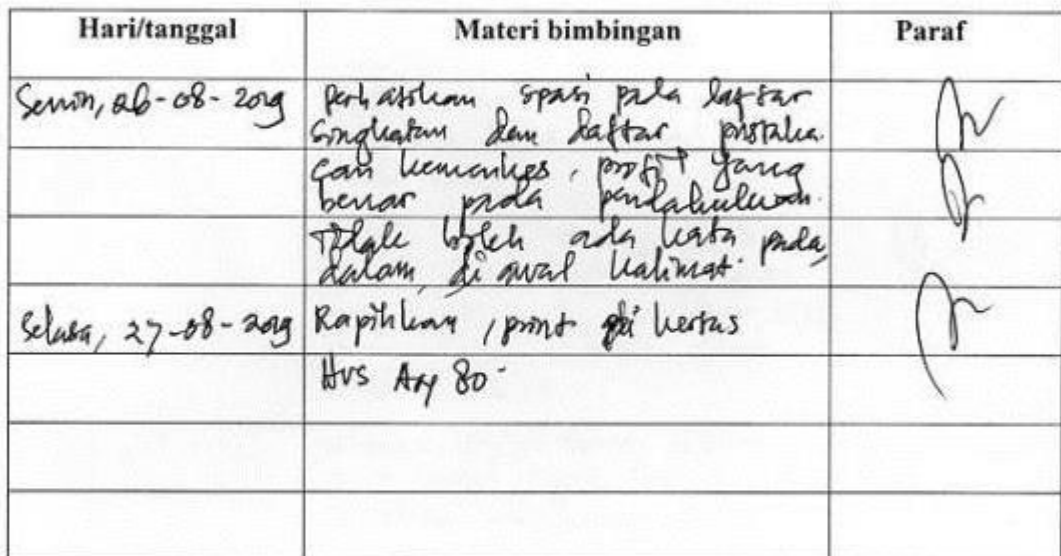 Hari/tanggal Materi bimbingan Paraf
Senin, 26-08-2019 perhatikan spasi pada daftar
singkatan dan daftar pustaka.
cari kemenkes, profit yang
benar pada pendahuluan.
Tidak boleh ada kata pada,
dalam, di awal kalimat.
Selasa, 27-08-2019 Rapihkan, print di kertas
HVS A4 80